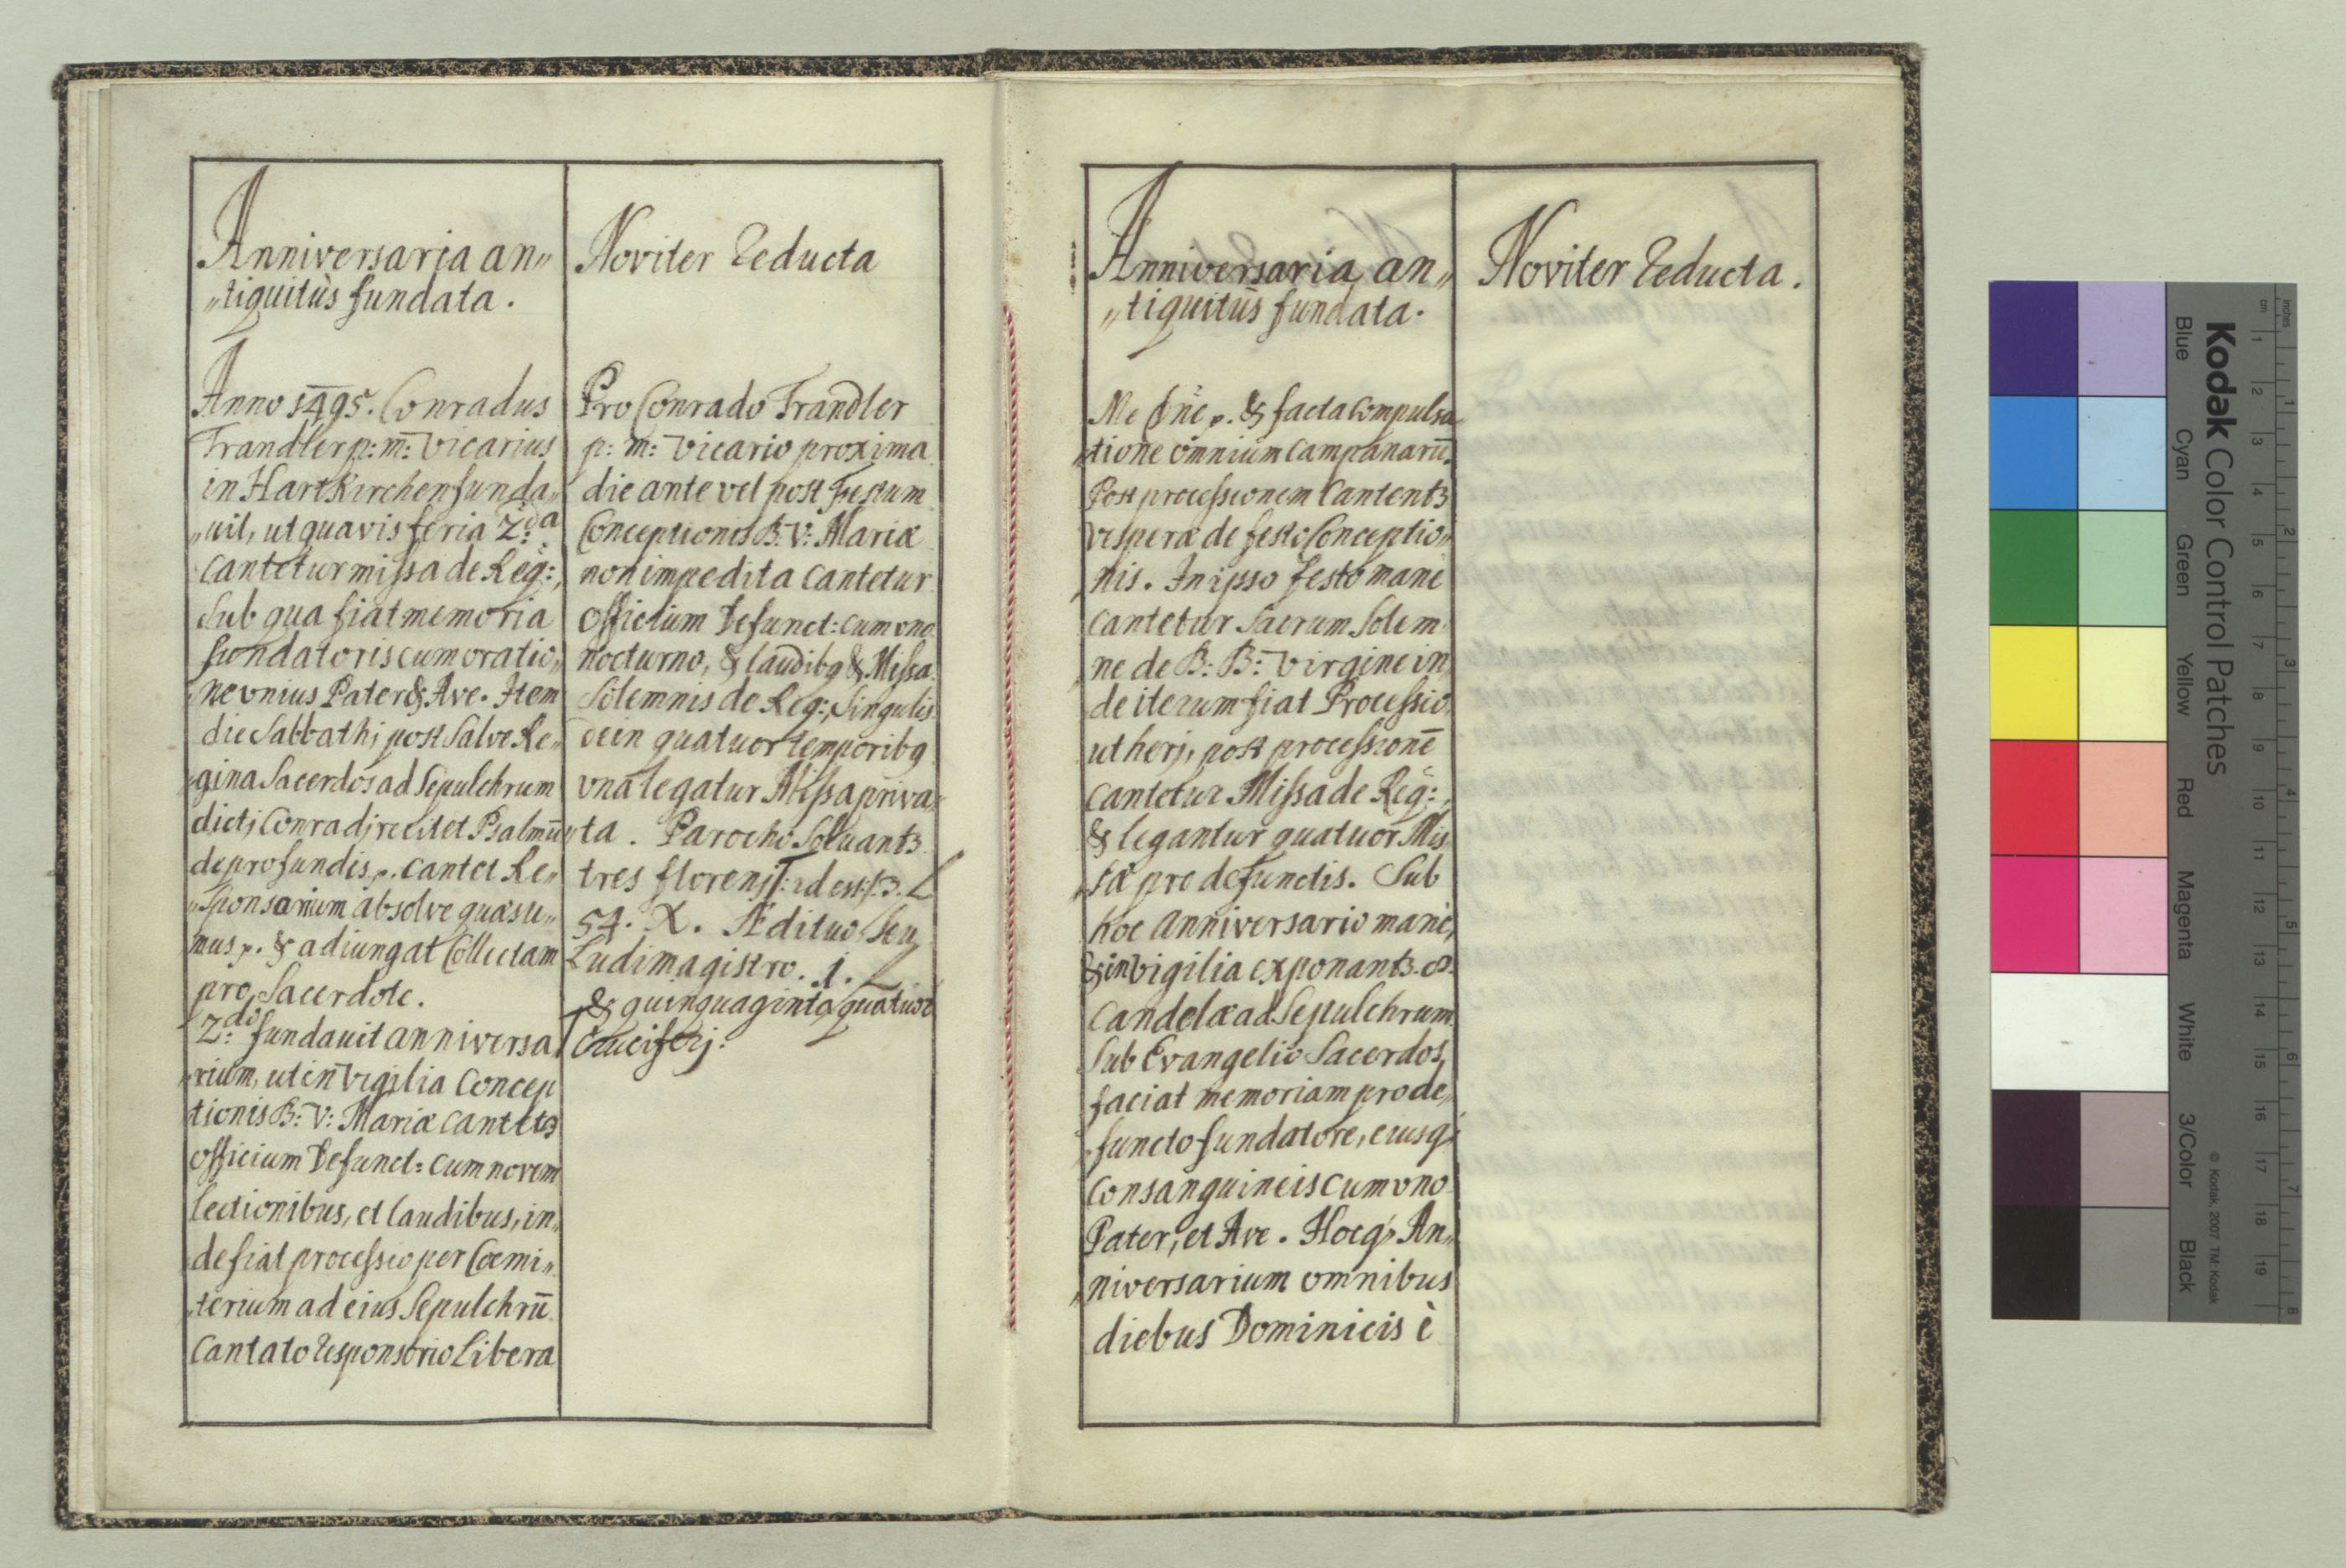 Anniversaria an„
„tiquitùs fundata.
Anno 1495. Conradus
Trandler p: m: Vicarius
in Hartkirchen funda„
„uit, ut quavis feria 2:da
Cantetur missa de Req:,
sub qua fiat memoria
fundatoris cum oratio„
ne vnius Pater & Ave. Item
die Sabbathj post Salve Re„
gina Sacerdos ad Sepulchrum
dictj Conradj recitet Psalmū
de profundis p. cantet Re„
„sponsorium absolve quæsu„
mus p. & adiungat Collectam
pro Sacerdote.
2:dò fundauit anniversa
„rium, ut in Vigilia Concep
tionis B: V: Mariæ cantetʒ
officium Defunct: cum novem
lectionibus, et laudibus, in„
de fiat processio per Coemi„
„terium ad eius Sepulchrū
Cantato responsorio Libera
Noviter reducta
Pro Conrado Trandler
p: m: Vicario proxima
die ante vel post Festum
Conceptionis B: V: Mariæ
non impedita cantetur
officium Defunct: cum vno
nocturno, & laudibq & Missa
Solemnis de Req:, Singulis
dein quatuor temporibq
vna legatur Missa priva„
„ta. Parocho Soluantʒ
tres florenj: id est: 3. L
54. X. Ædituo seu
Ludimagistro. 1. L
& quinquaginta quatuor
Cruciferj.
Anniversaria an„
„tiquitùs fundata.
Me Dn̄e p. & facta Compulsa
„tione omnium Campanarū.
Post processionem Cantentʒ
vesperæ de festo Conceptio„
nis. In ipso festo mane
cantetur Sacrum Solem
ne de B: B: Virgine in
de iterum fiat Processio
ut herj, post processionē
cantetur Missa de Req:,
& legantur quatuor Mis
sæ pro defunctis. Sub
hoc anniversario manè,
& in Vigilia exponantʒ. 8.
Candelæ ad Sepulchrum
Sub Evangelio Sacerdos
faciat memoriam pro de„
„functo fundatore, eiusq;
Consanguineis cum vno
Pater, et Ave. Hocq; An„
„niversarium omnibus
diebus Dominicis è
Noviter reducta.
Kodak Color Control Patches
Blue
Cyan
Green
Yellow
Red
Magenta
White
3/Color
Black
© Kodak, 2007 TM: Kodak
cm
1
2
3
4
5
6
7
8
9
10
11
12
13
14
15
16
17
18
19
inches
1
2
3
4
5
6
7
8